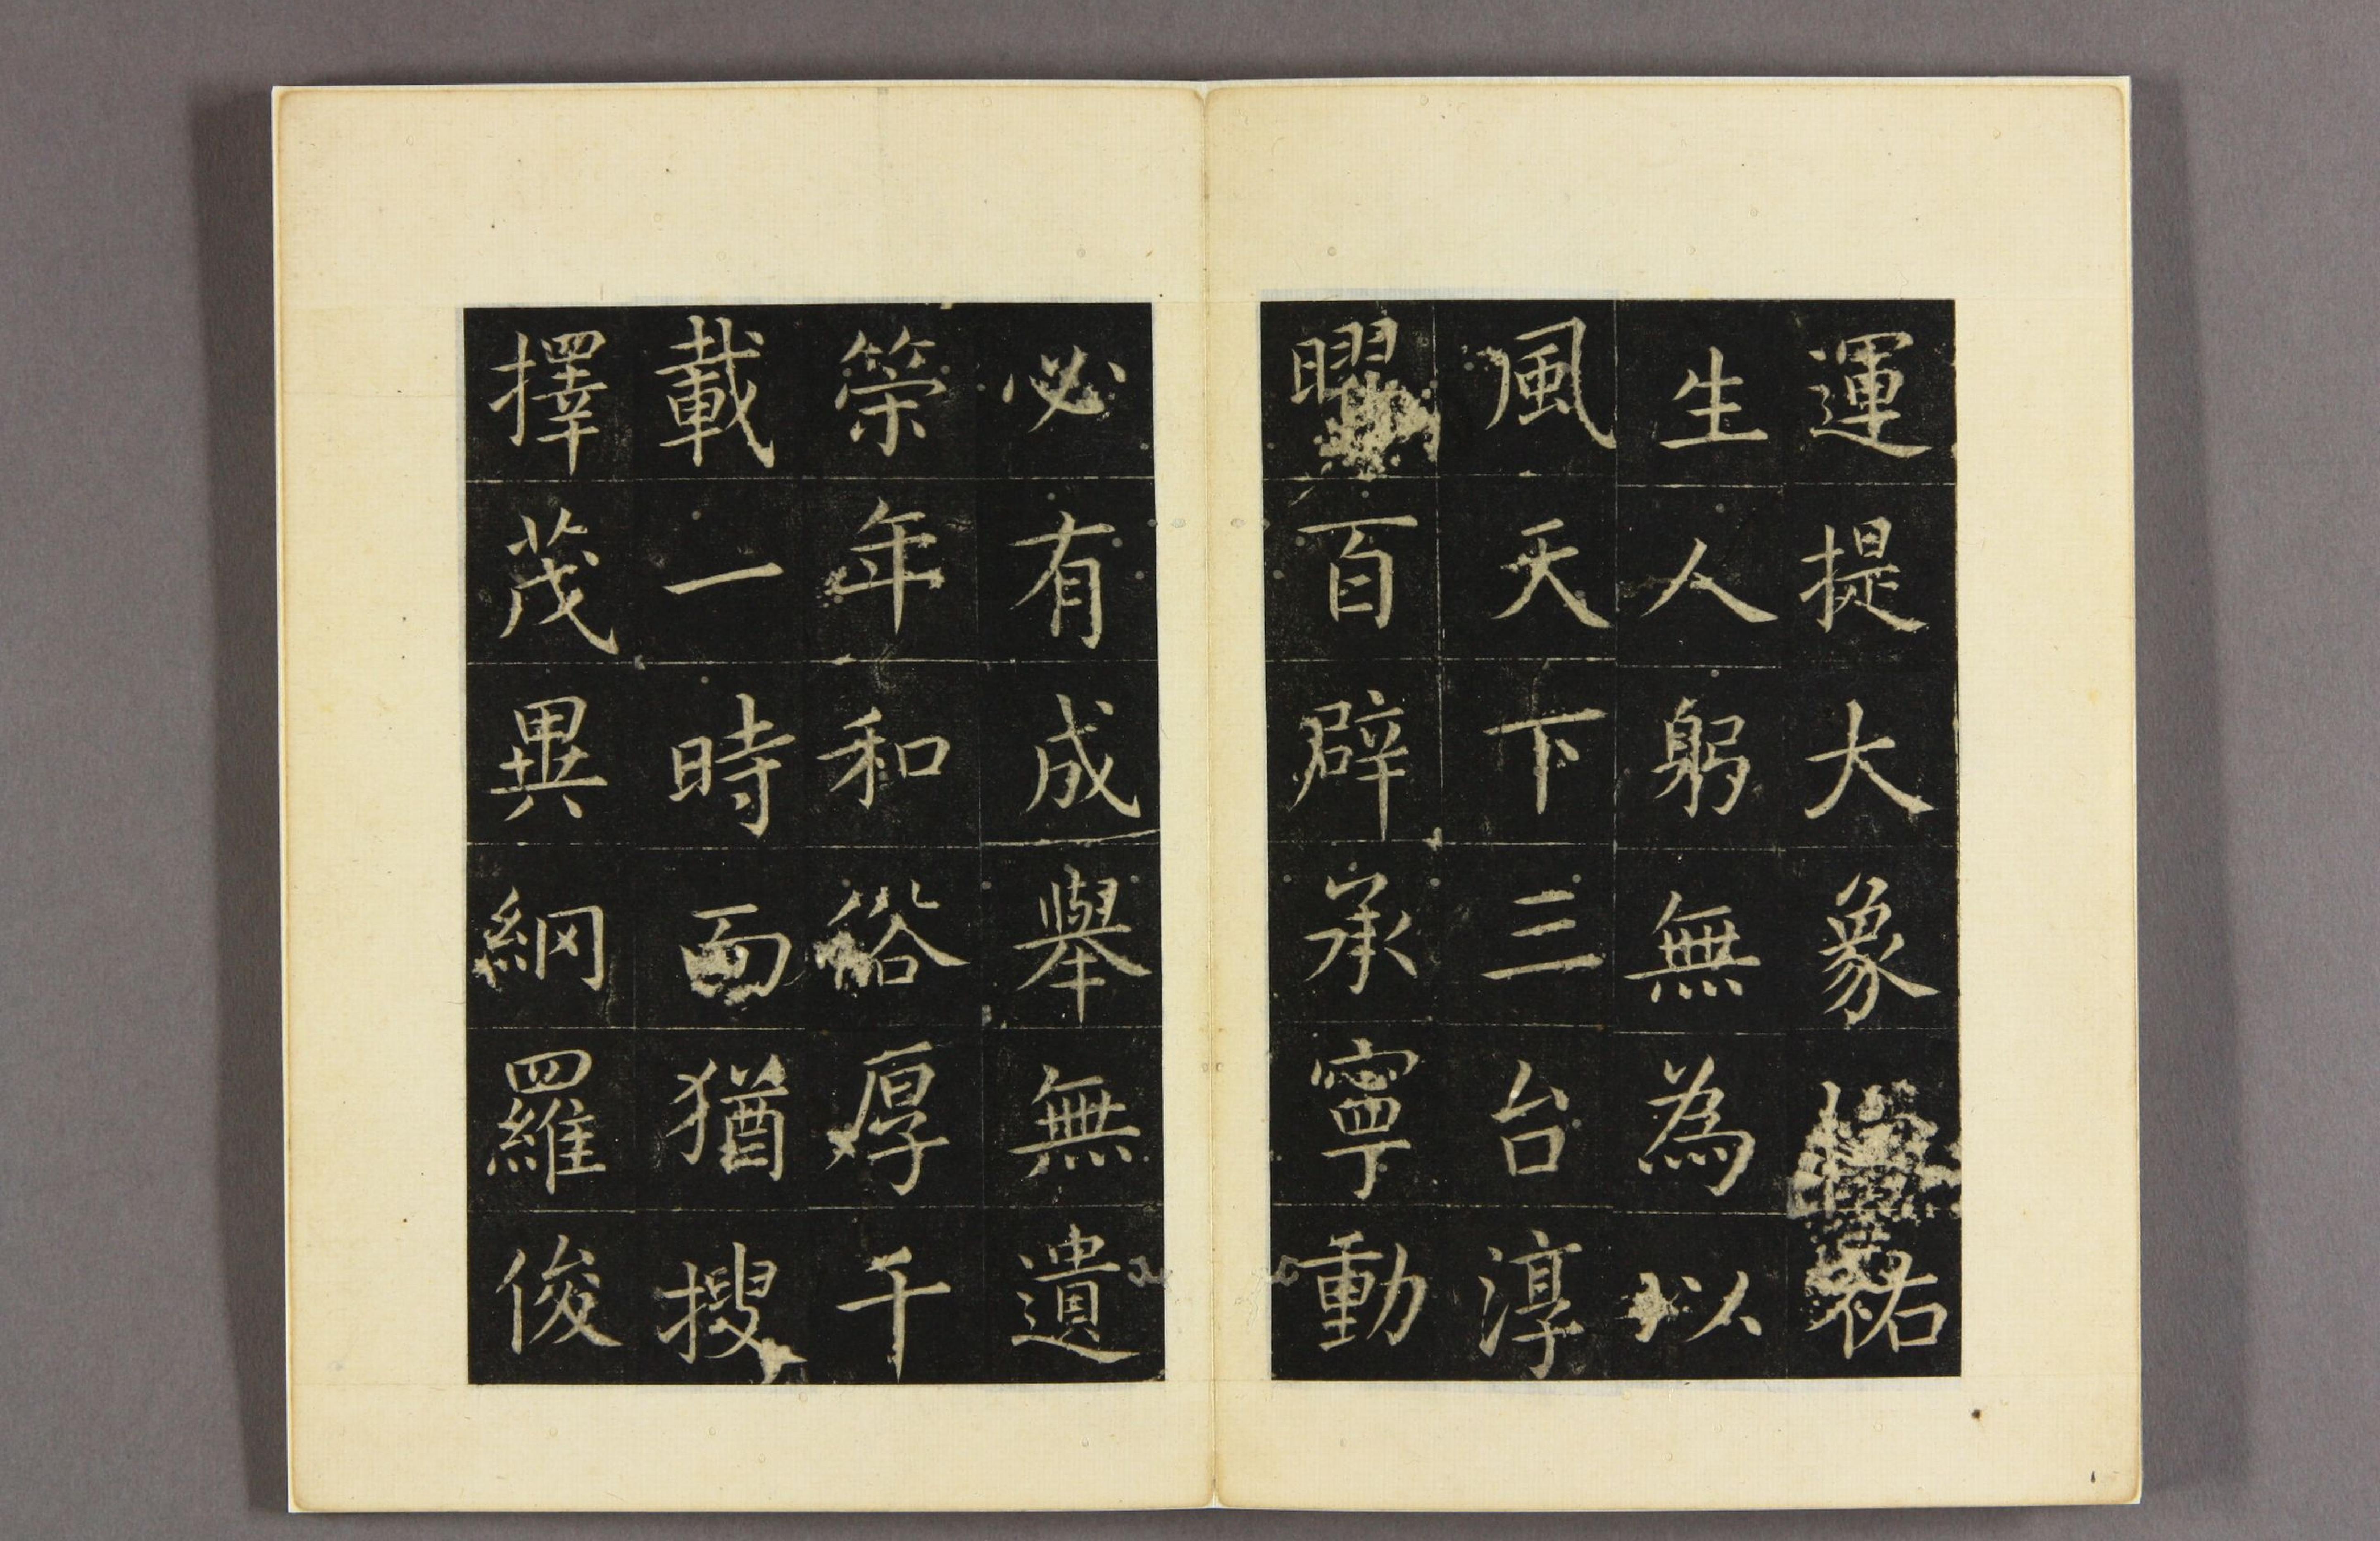 運提大象祐
生人躬無為以
風天下三台淳
曜百辟承寧動
必有成舉無遺
筞年和俗厚千
載一時而猶搜
擇茂異網羅俊